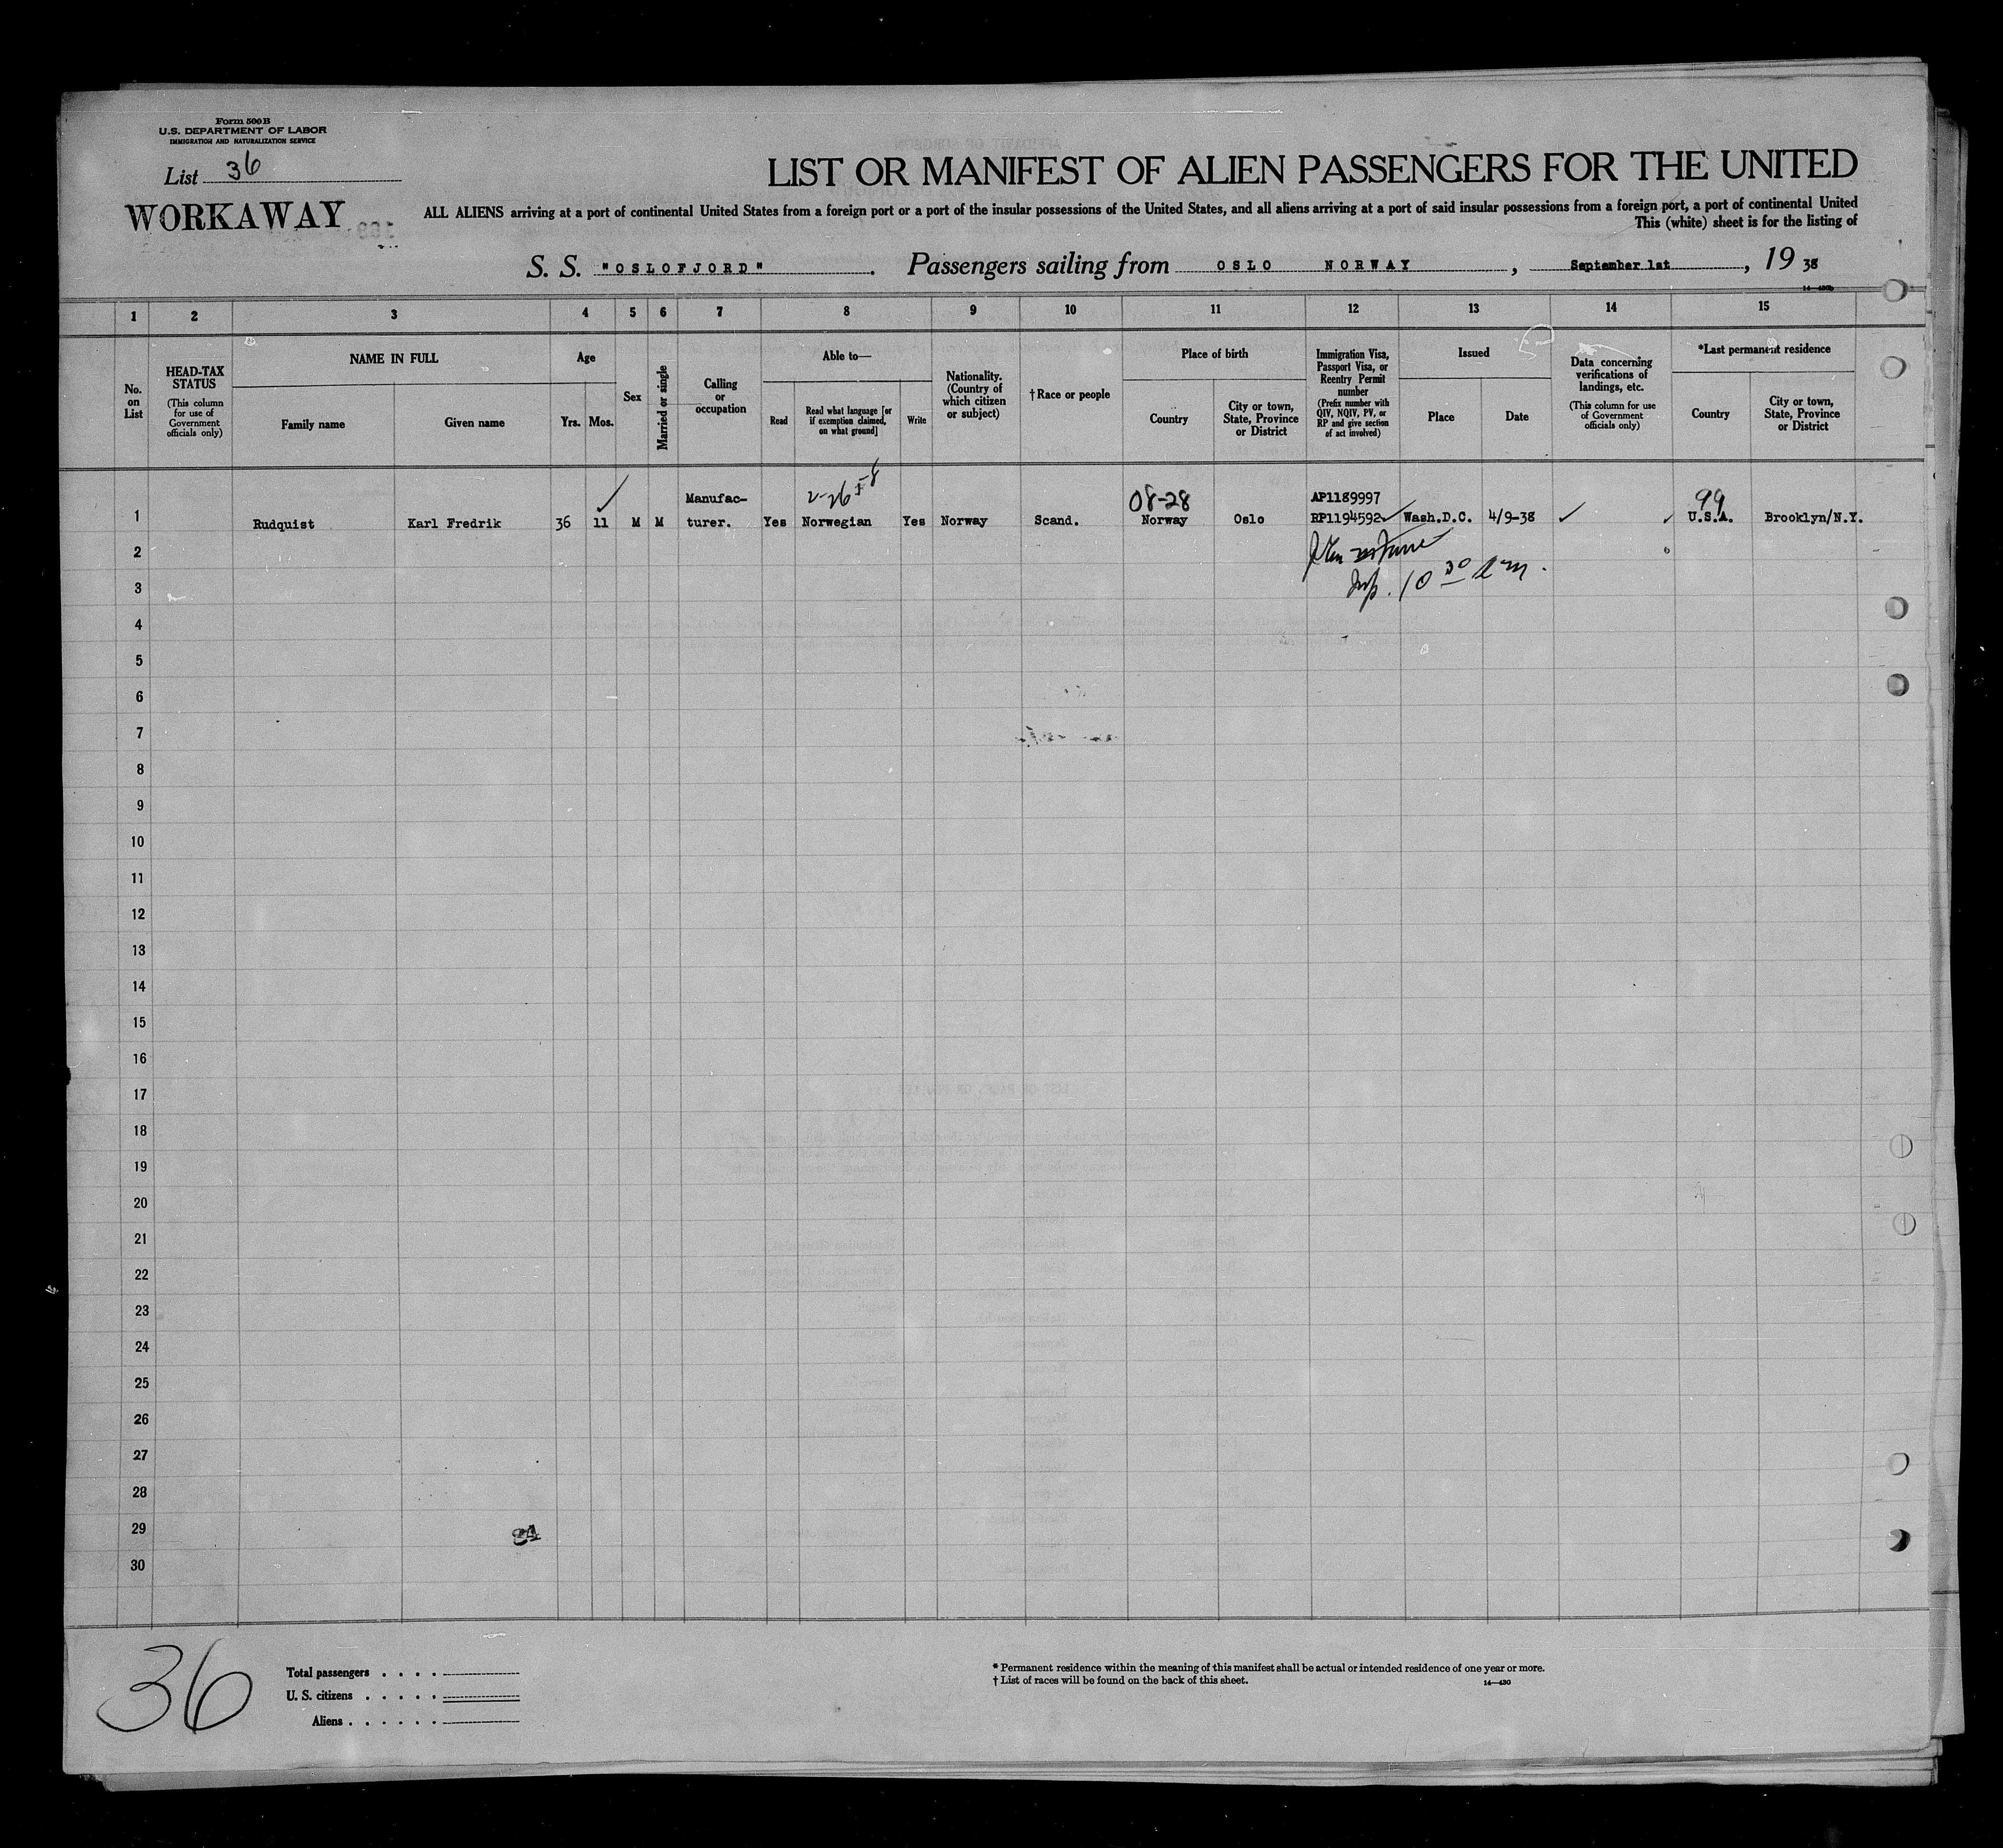 Form 500B
U.S. DEPARTMENT OF LABOR
IMMIGRATION AND NATURALIZATION SERVICE
List 36
WORKAWAY
LIST OR MANIFEST OF ALIEN PASSENGERS FOR THE UNITED
ALL ALIENS arriving at a port of continental United States from a foreign port or a port of the insular possessions of the United States, and all aliens arriving at a port of said insular possessions from a foreign port, a port of continental United
This (white) sheet is for the listing of
S. S. "OSLOFJORD" . Passengers sailing from OSLO NORWAY , September 1st , 19 38
14—430b
1 2 3 4 5 6 7 8 9 10 11 12 13 14 15
No. on List
HEAD-TAX STATUS
(This column for use of Government officials only)
NAME IN FULL
Family name
Given name
Age
Yrs. Mos.
Sex
Married or single
Calling or occupation
Able to—
Read
Read what language [or if exemption claimed, on what ground]
Write
Nationality. (Country of which citizen or subject)
† Race or people
Place of birth
Country
City or town, State, Province or District
Immigration Visa, Passport Visa, or Reentry Permit number
(Prefix number with QIV, NQIV, PV, or RP and give section of act involved)
Issued
Place
Date
Data concerning verifications of landings, etc.
(This column for use of Government officials only)
*Last permanent residence
Country
City or town, State, Province or District
Manufac- 08-28 AP1189997 99
1 Rudquist Karl Fredrik 36 11 M M turer. Yes Norwegian Yes Norway Scand. Norway Oslo RP1194592 Wash.D.C. 4/9-38 U.S.A. Brooklyn/N.Y.
2
3
4
5
6
7
8
9
10
11
12
13
14
15
16
17
18
19
20
21
22
23
24
25
26
27
28
29
30
36
Total passengers . . . .
U. S. citizens . . . . .
Aliens . . . . . .
* Permanent residence within the meaning of this manifest shall be actual or intended residence of one year or more.
† List of races will be found on the back of this sheet.
14—430